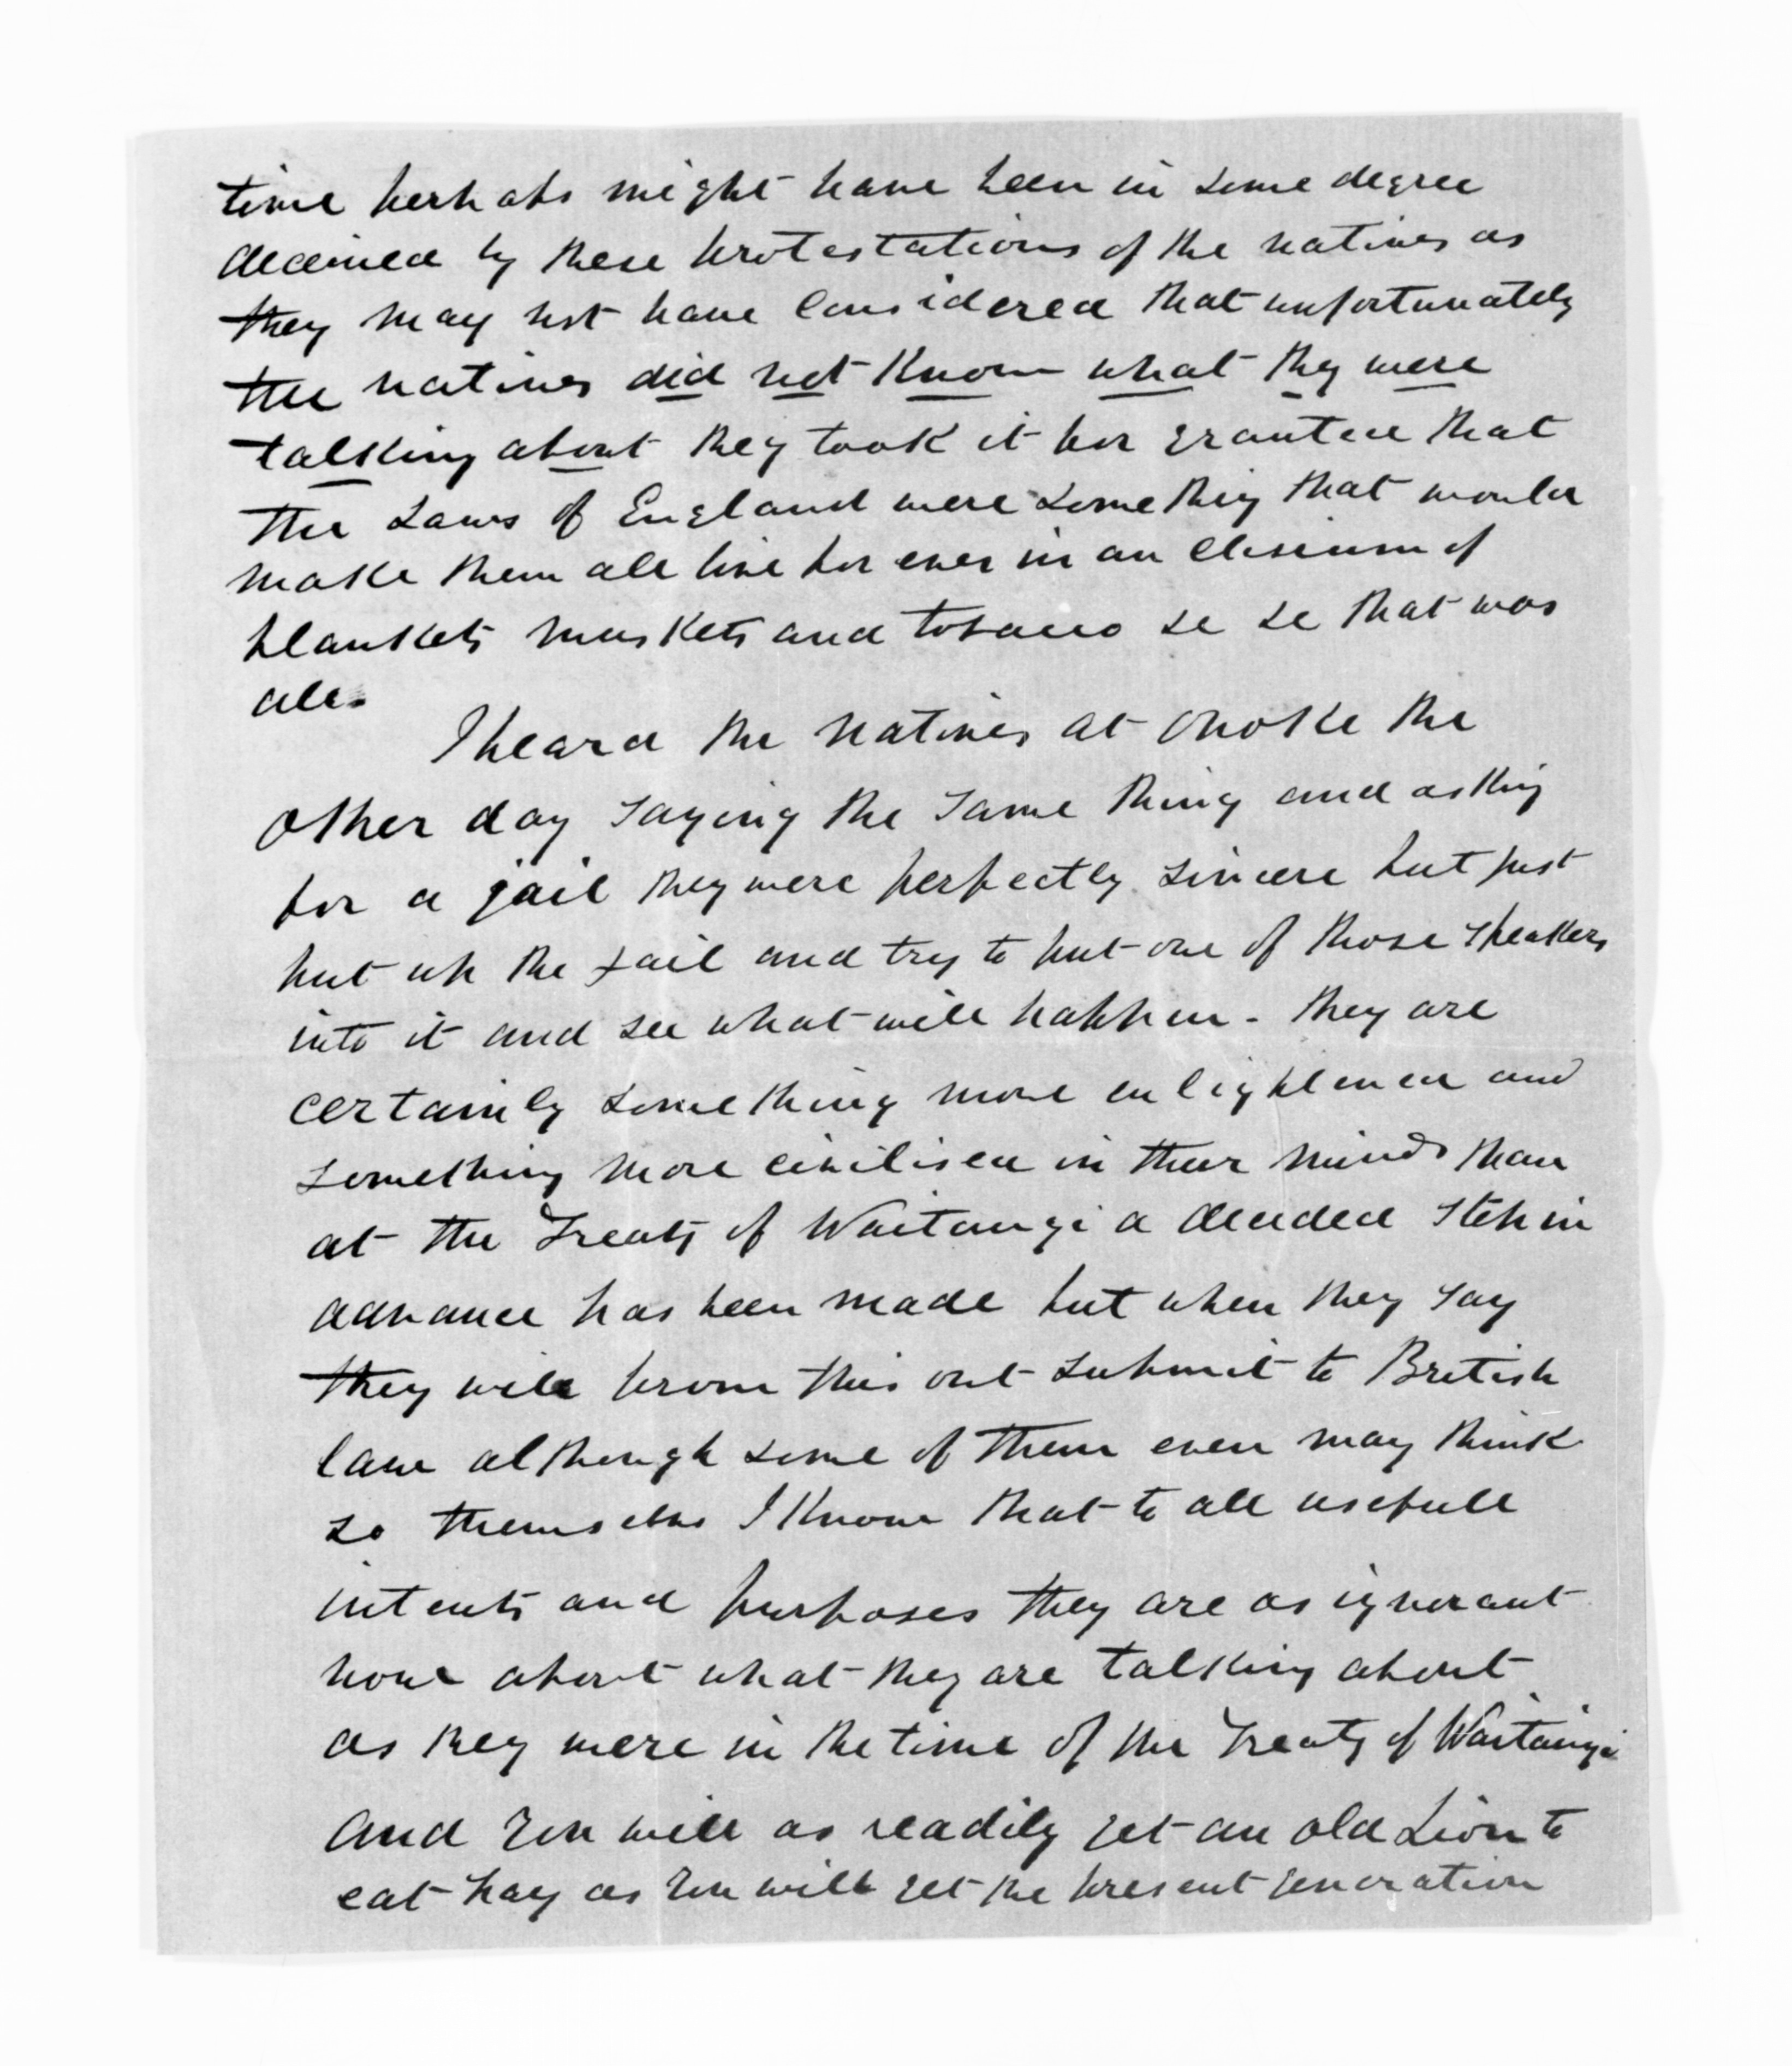 time perhaps might have been in some degree
deceived by these protestations of the natives as
they may not have considered that unfortunately
the natives did not know what they were
talking about they took it for granted that
the Laws of England were something that would
make them all live for ever in an elisium of
blankets muskets and tobacco &c &c that was
all.
I heard the natives at Oroke the
other day saying the same thing and asking
for a jail they were perfectly sincere but just
put up the jail and try to put one of those speakers
into it and see what will happen - they are
certainly something more enlightened and
something more civilised in their minds than
at the Treaty of Waitangi a decided step in
advance has been made but when they say
they will from this out submit to British
law although some of them even may think
so themselves I know that to all usefull
intents and purposes they are as ignorant
now about what they are talking about
as they were in the time of the Treaty of Waitangi
and you will as readily get an old Lion to
eat hay as you will get the present generation